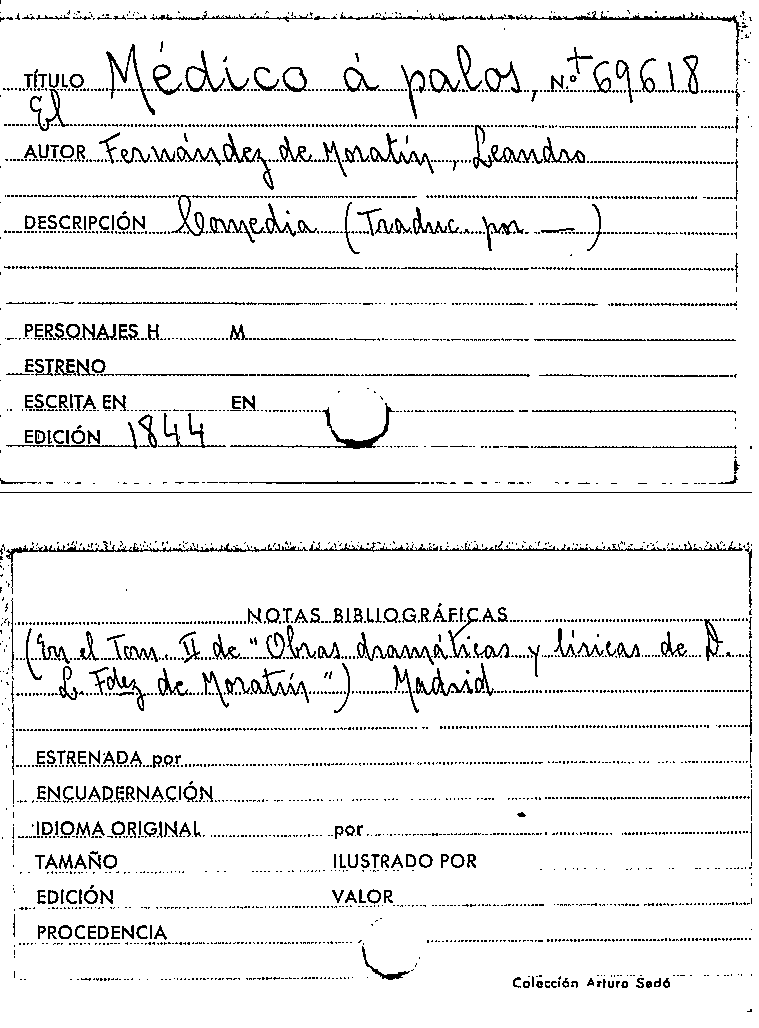 TÍTULO Médico á palos, N.º + 69618
El
AUTOR Fernández de Moratín, Leandro
DESCRIPCIÓN Comedia (Traduc. por — )
PERSONAJES H M
ESTRENO
ESCRITA EN EN
EDICIÓN 1844
NOTAS BIBLIOGRÁFICAS
(En el Tom. II de "Obras dramáticas y líricas de D.
L. Fdez de Moratín") Madrid
ESTRENADA por
ENCUADERNACIÓN
IDIOMA ORIGINAL por
TAMAÑO ILUSTRADO POR
EDICIÓN VALOR
PROCEDENCIA
Colección Arturo Sedó